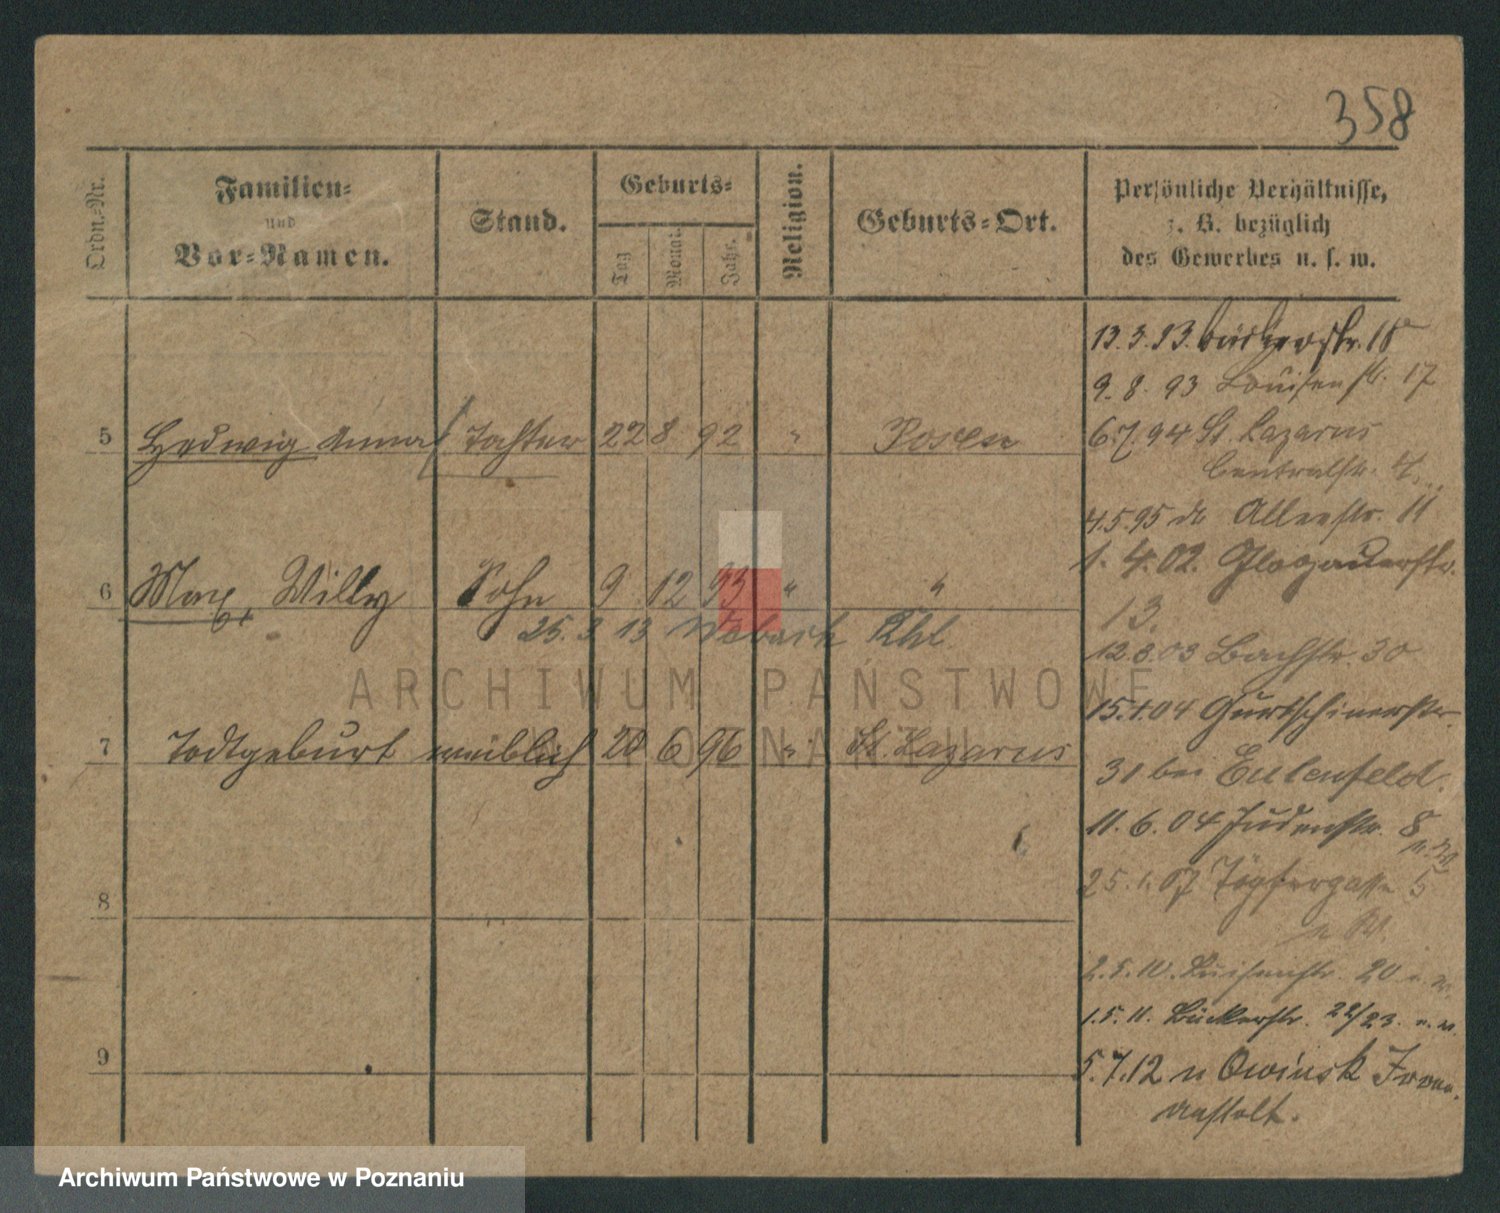 358
Ordn.-Nr.
Familien-
und
Vor-Namen.
Stand.
Geburts-
Tag
Monat.
Jahr.
Religion.
Geburts-Ort.
Persönliche Verhältnisse,
z. B. bezüglich
des Gewerbes u. s. w.
13.3.93. 18
9.8.93 Louisenstr. 17
5 Hedwig Anna Tochter 22 8 92 " Posen
6.7.94 St. Lazarus
Centralstr.
4.5.95 Alleestr. 11
6 Max Willy Sohn 9 12 93 " "
1.4.02. Glogauerstr.
13.
25. 3. 13
12.3.03 Bachstr. 30
15.1.04 Gurtschinerstr.
7 Todtgeburt weiblich 20 6 96 " St. Lazarus
31 bei Eulenfeld.
11.6.04 Judenstr. 8
25.1.07 Töpfergasse 5
8
2.5.10. Luisenstr. 20
1.5.11. Bückerstr. 22/23.
9
5.7.12 n Owinsk Irren-
anstalt.
ARCHIWUM PAŃSTWOWE
POZNAŃ
Archiwum Państwowe w Poznaniu